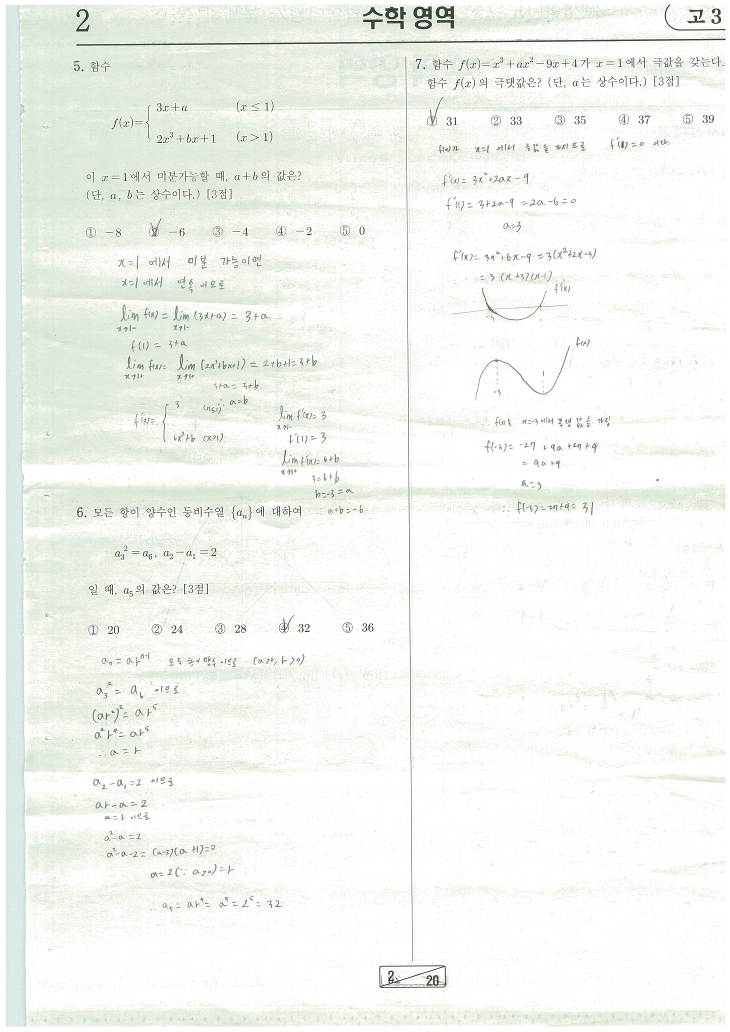 2
수학 영역
고 3
5. 함수
f(x)={ 3x+a (x≤1)
2x³+bx+1 (x>1)
이 x=1에서 미분가능할 때, a+b의 값은?
(단, a, b는 상수이다.) [3점]
① -8 ② -6 ③ -4 ④ -2 ⑤ 0
x=1 에서 미분 가능이면
x=1에서 연속 이므로
lim x→1- f(x) = lim x→1- (3x+a) = 3+a
f(1) = 3+a
lim x→1+ f(x) = lim x→1+ (2x³+bx+1) = 2+b+1=3+b
3+a=3+b
∴ a=b
f'(x)={ 3 (x≤1)
6x²+b (x>1)
lim x→1- f'(x)=3
f'(1)=3
lim x→1+ f'(x)=6+b
3=6+b
b=-3=a
∴ a+b=-6
6. 모든 항이 양수인 등비수열 {aₙ}에 대하여
a₃²=a₆, a₂-a₁=2
일 때, a₅의 값은? [3점]
① 20 ② 24 ③ 28 ④ 32 ⑤ 36
aₙ=arⁿ⁻¹ 모든 항이 양수 이므로 (a>0, r>0)
a₃²=a₆ 이므로
(ar²)²=ar⁵
a²r⁴=ar⁵
∴ a=r
a₂-a₁=2 이므로
ar-a=2
a=r 이므로
a²-a=2
a²-a-2=(a-2)(a+1)=0
a=2(∵ a>0)=r
∴ a₅=ar⁴=a⁵=2⁵=32
7. 함수 f(x)=x³+ax²-9x+4가 x=1에서 극값을 갖는다.
함수 f(x)의 극댓값은? (단, a는 상수이다.) [3점]
① 31 ② 33 ③ 35 ④ 37 ⑤ 39
f(x)가 x=1 에서 극값을 가지므로 f'(1)=0 이다
f'(x)=3x²+2ax-9
f'(1)=3+2a-9=2a-6=0
a=3
f'(x)=3x²+6x-9=3(x²+2x-3)
=3(x+3)(x-1)
f'(x)
-3
f(x)
-3 1
∴ f(x)는 x=-3에서 극댓값을 가짐
f(-3)=-27+9a+27+4
=9a+4
a=3
∴ f(-3)=27+4=31
2 20